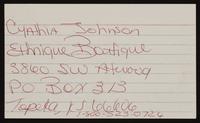 Cynthia Johnson
Ethnique Boutique
3860 SW Atwood
PO Box 313
Topeka, KS 66606